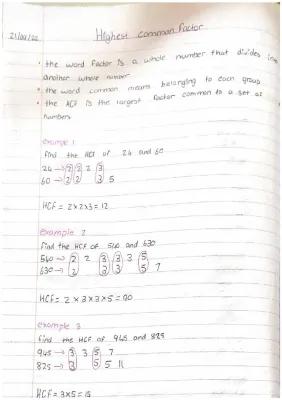 Highest common factor
21/09/22
• the word factor is a whole number that divides into
another whole number
• the word common means belonging to each group
• the HCF is the largest factor common to a set of
numbers
example 1
find the HCF of 24 and 60
24 → 2 2 2 3
60 → 2 2 3 5
HCF = 2×2×3 = 12
example 2
find the HCF of 540 and 630
540 → 2 2 3 3 3 5
630 → 2 3 3 5 7
HCF = 2 × 3 × 3 × 5 = 90
example 3
find the HCF of 945 and 825
945 → 3 3 5 7
825 → 3 5 5 11
HCF = 3×5 = 15